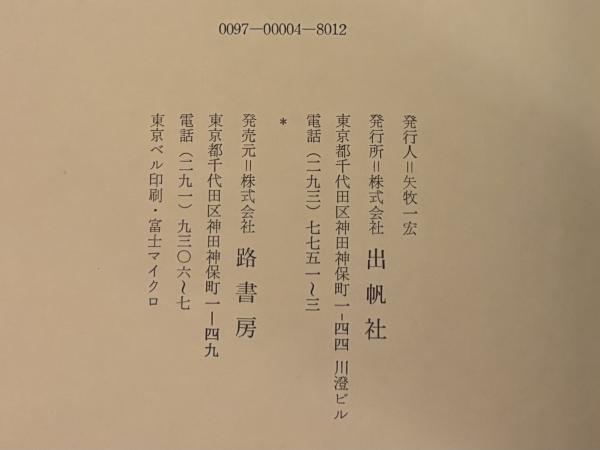 0097—00004—8012
発行人＝矢牧一宏
発行所＝株式会社 出帆社
東京都千代田区神田神保町一-四四 川澄ビル
電話（二九三）七七五一〜三
*
発売元＝株式会社 路書房
東京都千代田区神田神保町一-四九
電話（二九一）九三〇六〜七
東京ベル印刷・富士マイクロ